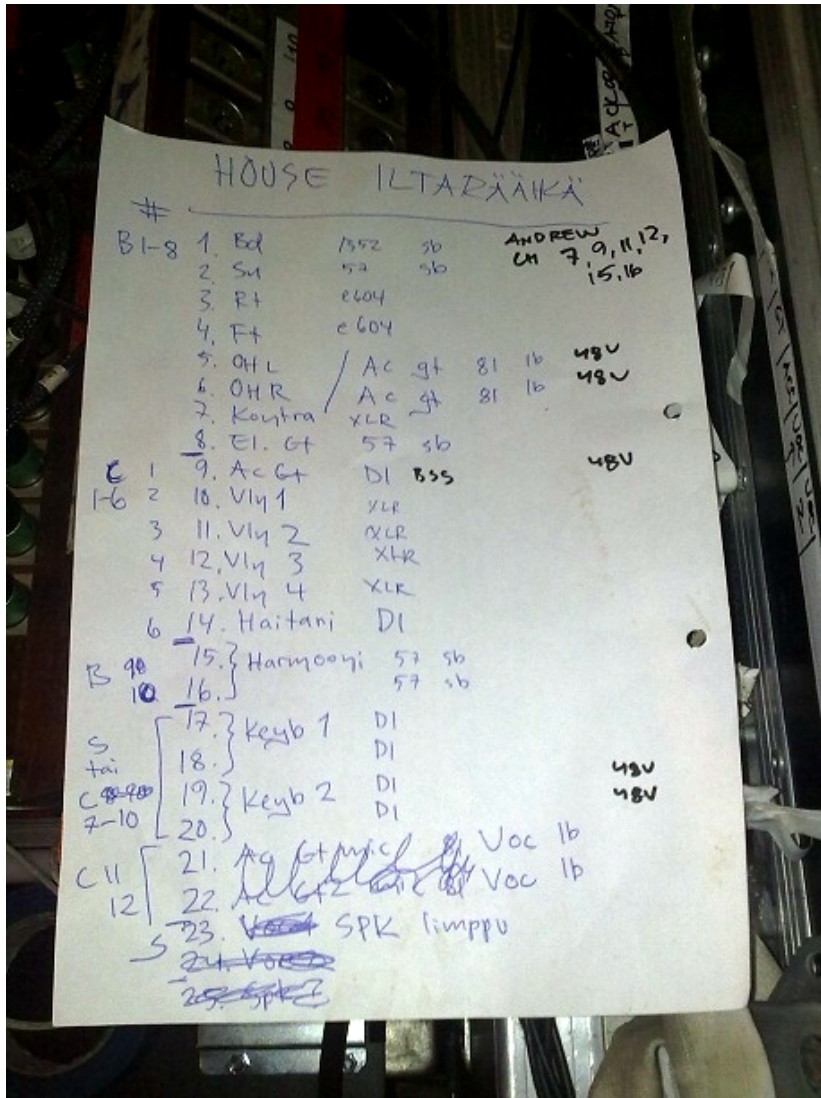 HOUSE ILTARÄÄIKÄ
#
B1-8 1. Bd 1352 sb ANDREW
2. Sn 57 sb CH 7, 9, 11, 12,
15, 16
3. Rt e604
4. Ft e604
5. OH L / Ac gt 81 lb 48V
6. OH R Ac gt 81 lb 48V
7. Kontra XLR
8. El. Gt 57 sb
C 1 9. Ac Gt DI BSS 48V
1-6 2 10. Vln 1 XLR
3 11. Vln 2 XLR
4 12. Vln 3 XLR
5 13. Vln 4 XLR
6 14. Haitari DI
B 9 15. } Harmooni 57 sb
10 16. 57 sb
17. } Keyb 1 DI
S
tai 18. DI
C 19. } Keyb 2 DI 48V
7-10 20. DI 48V
C 11 21. Ac Gt mic Voc lb
12 22. Ac Gt 2 Voc lb
S 23. SPK limppu
24. Voc
25. Spk